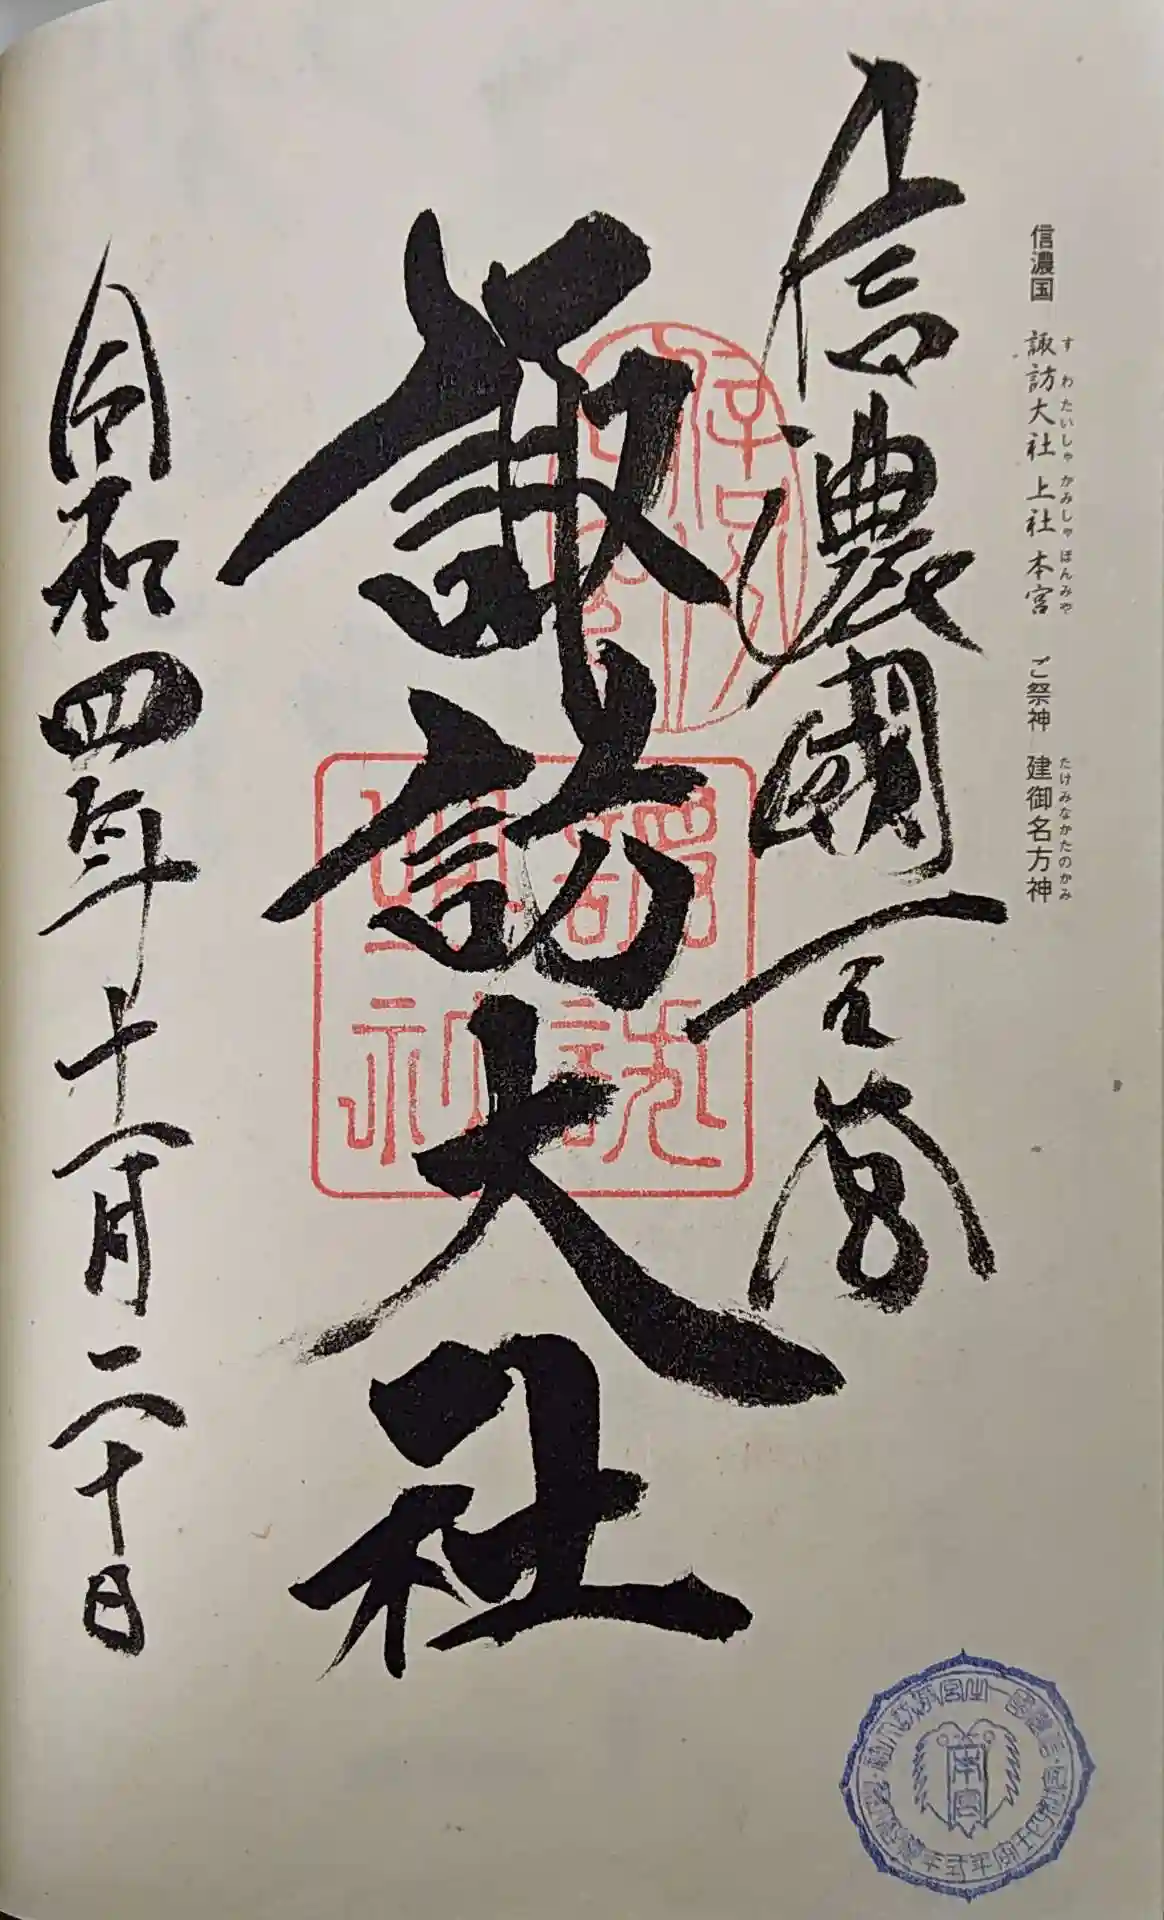 信濃国 諏訪大社 上社 本宮 ご祭神 建御名方神
すわたいしゃ かみしゃ ほんみや たけみなかたのかみ
信濃國一之宮
諏訪大社
令和四年十一月二十日
本宮